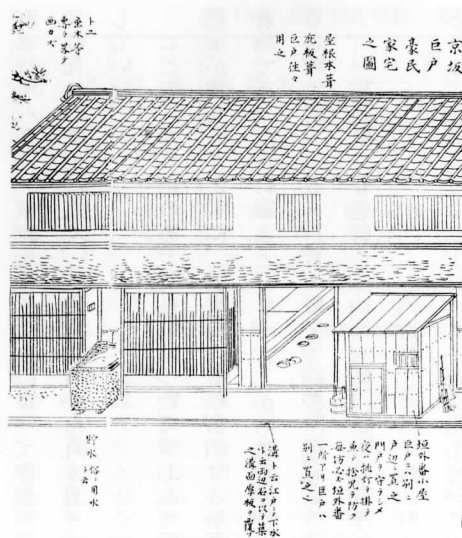 京坂
巨戸
豪民
家宅
之圖
屋根本葺
庇板葺
巨戸往々
用之
垂木等
画カズ
垣外番小屋
巨戸ニハ別ニ
戸辺ニ置之
門戸ヲ守ラシメ
夜ハ挑灯ヲ掛テ
一所アリ巨戸ハ
別ニ置之
溝ト云江戸ニ下水
ト云両辺石ヲ以テ築
之溝面厚板ヲ覆フ
貯水俗ニ用水
ト云